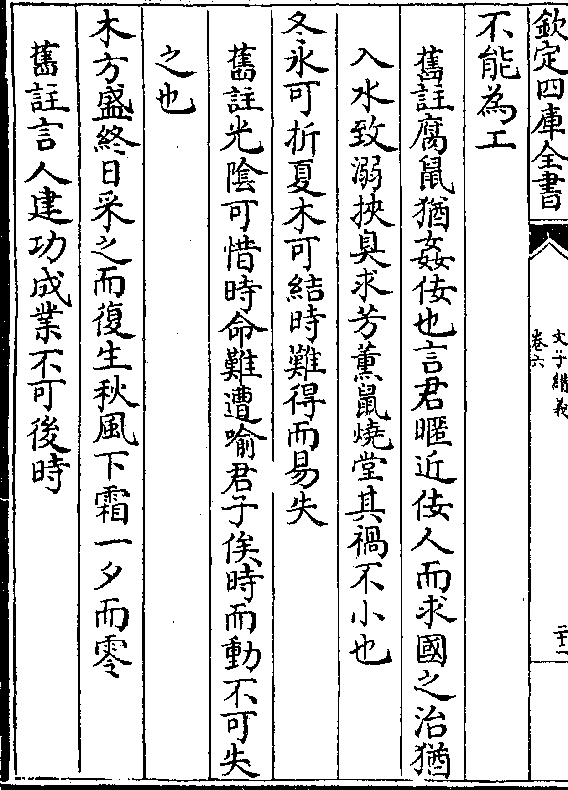 欽定四庫全書
文子纘義
卷六
二十二
不能為工
舊註腐鼠猶姦佞也言君暱近佞人而求國之治猶
入水致溺挾臭求芳薰鼠燒堂其禍不小也
冬氷可折夏木可結時難得而易失
舊註光陰可惜時命難遭喻君子俟時而動不可失
之也
木方盛終日采之而復生秋風下霜一夕而零
舊註言人建功成業不可後時